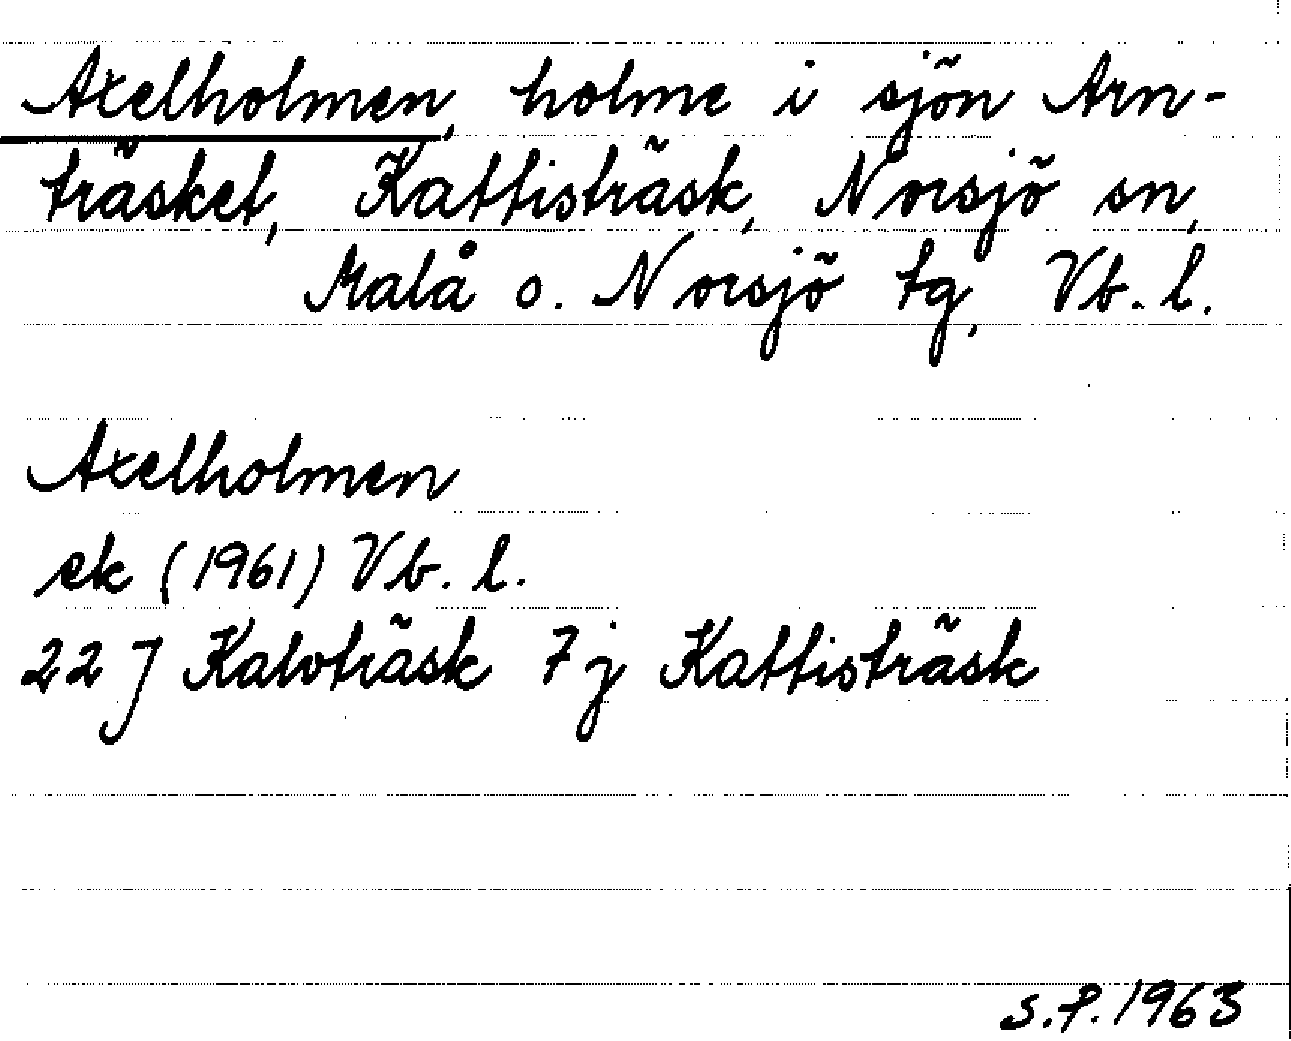 Axelholmen, holme i sjön Arn-
träsket, Kattisträsk, Norsjö sn,
Malå o. Norsjö tg, Vb. l.
Axelholmen
ek (1961) Vb. l.
22 J Kalvträsk 7 j Kattisträsk
S.P. 1963